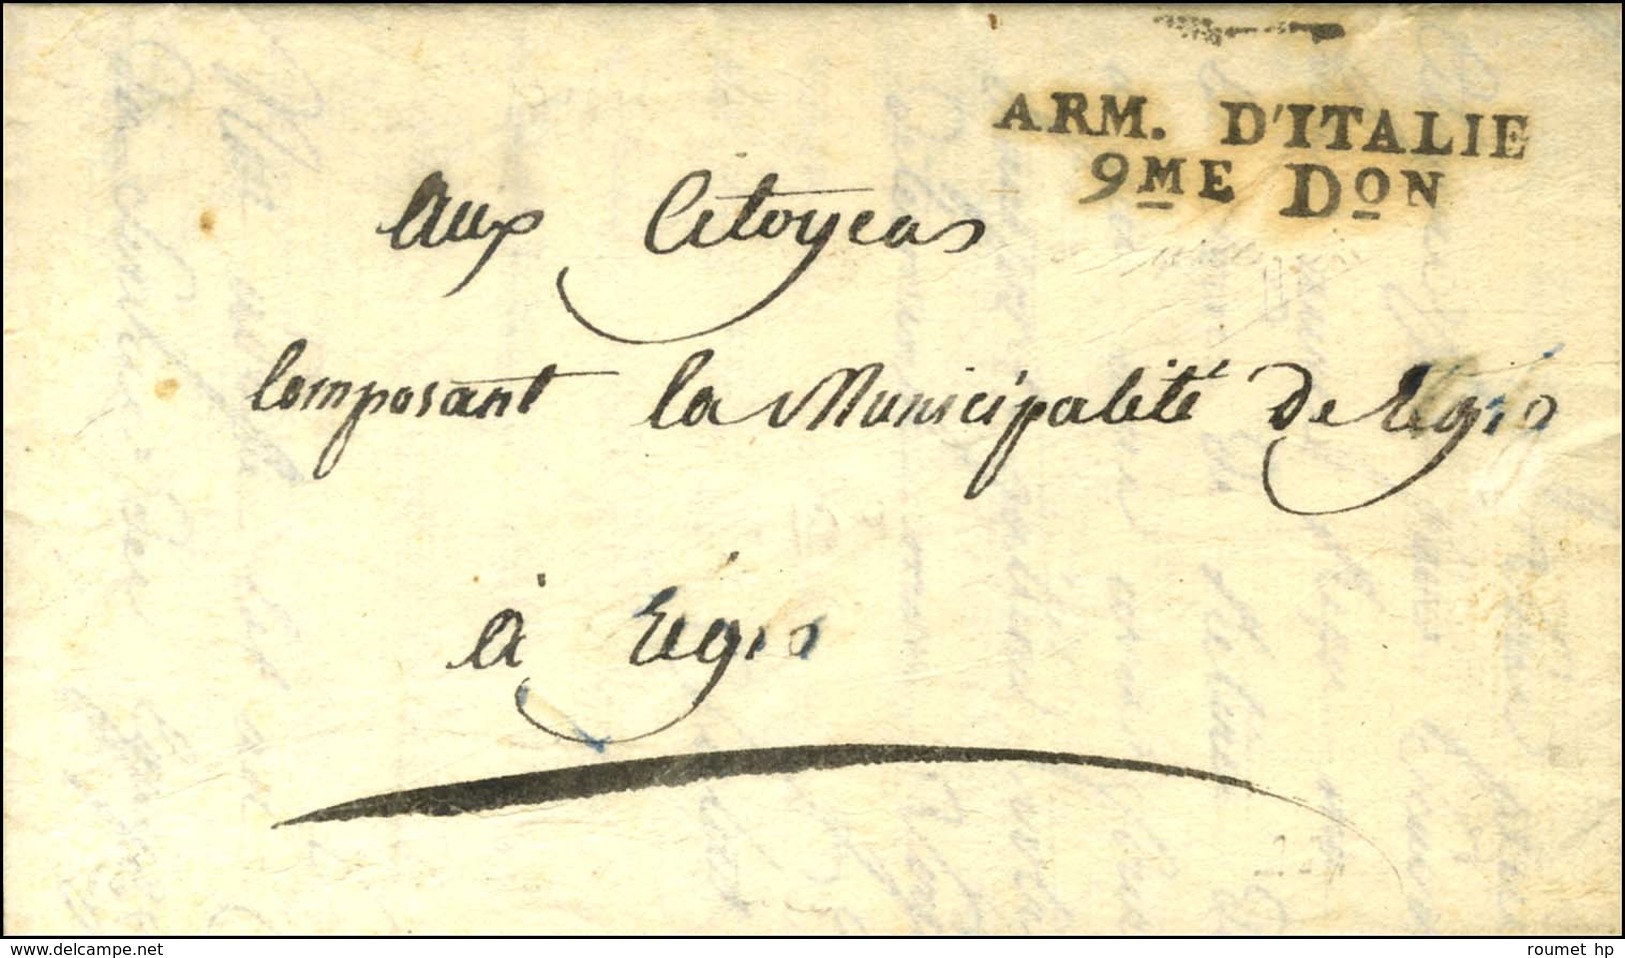 ARM. D'ITALIE
9ME DON
Aux Citoyens
Composant la Municipalité de Régio
à Régio
delcampe.net
roumet hp